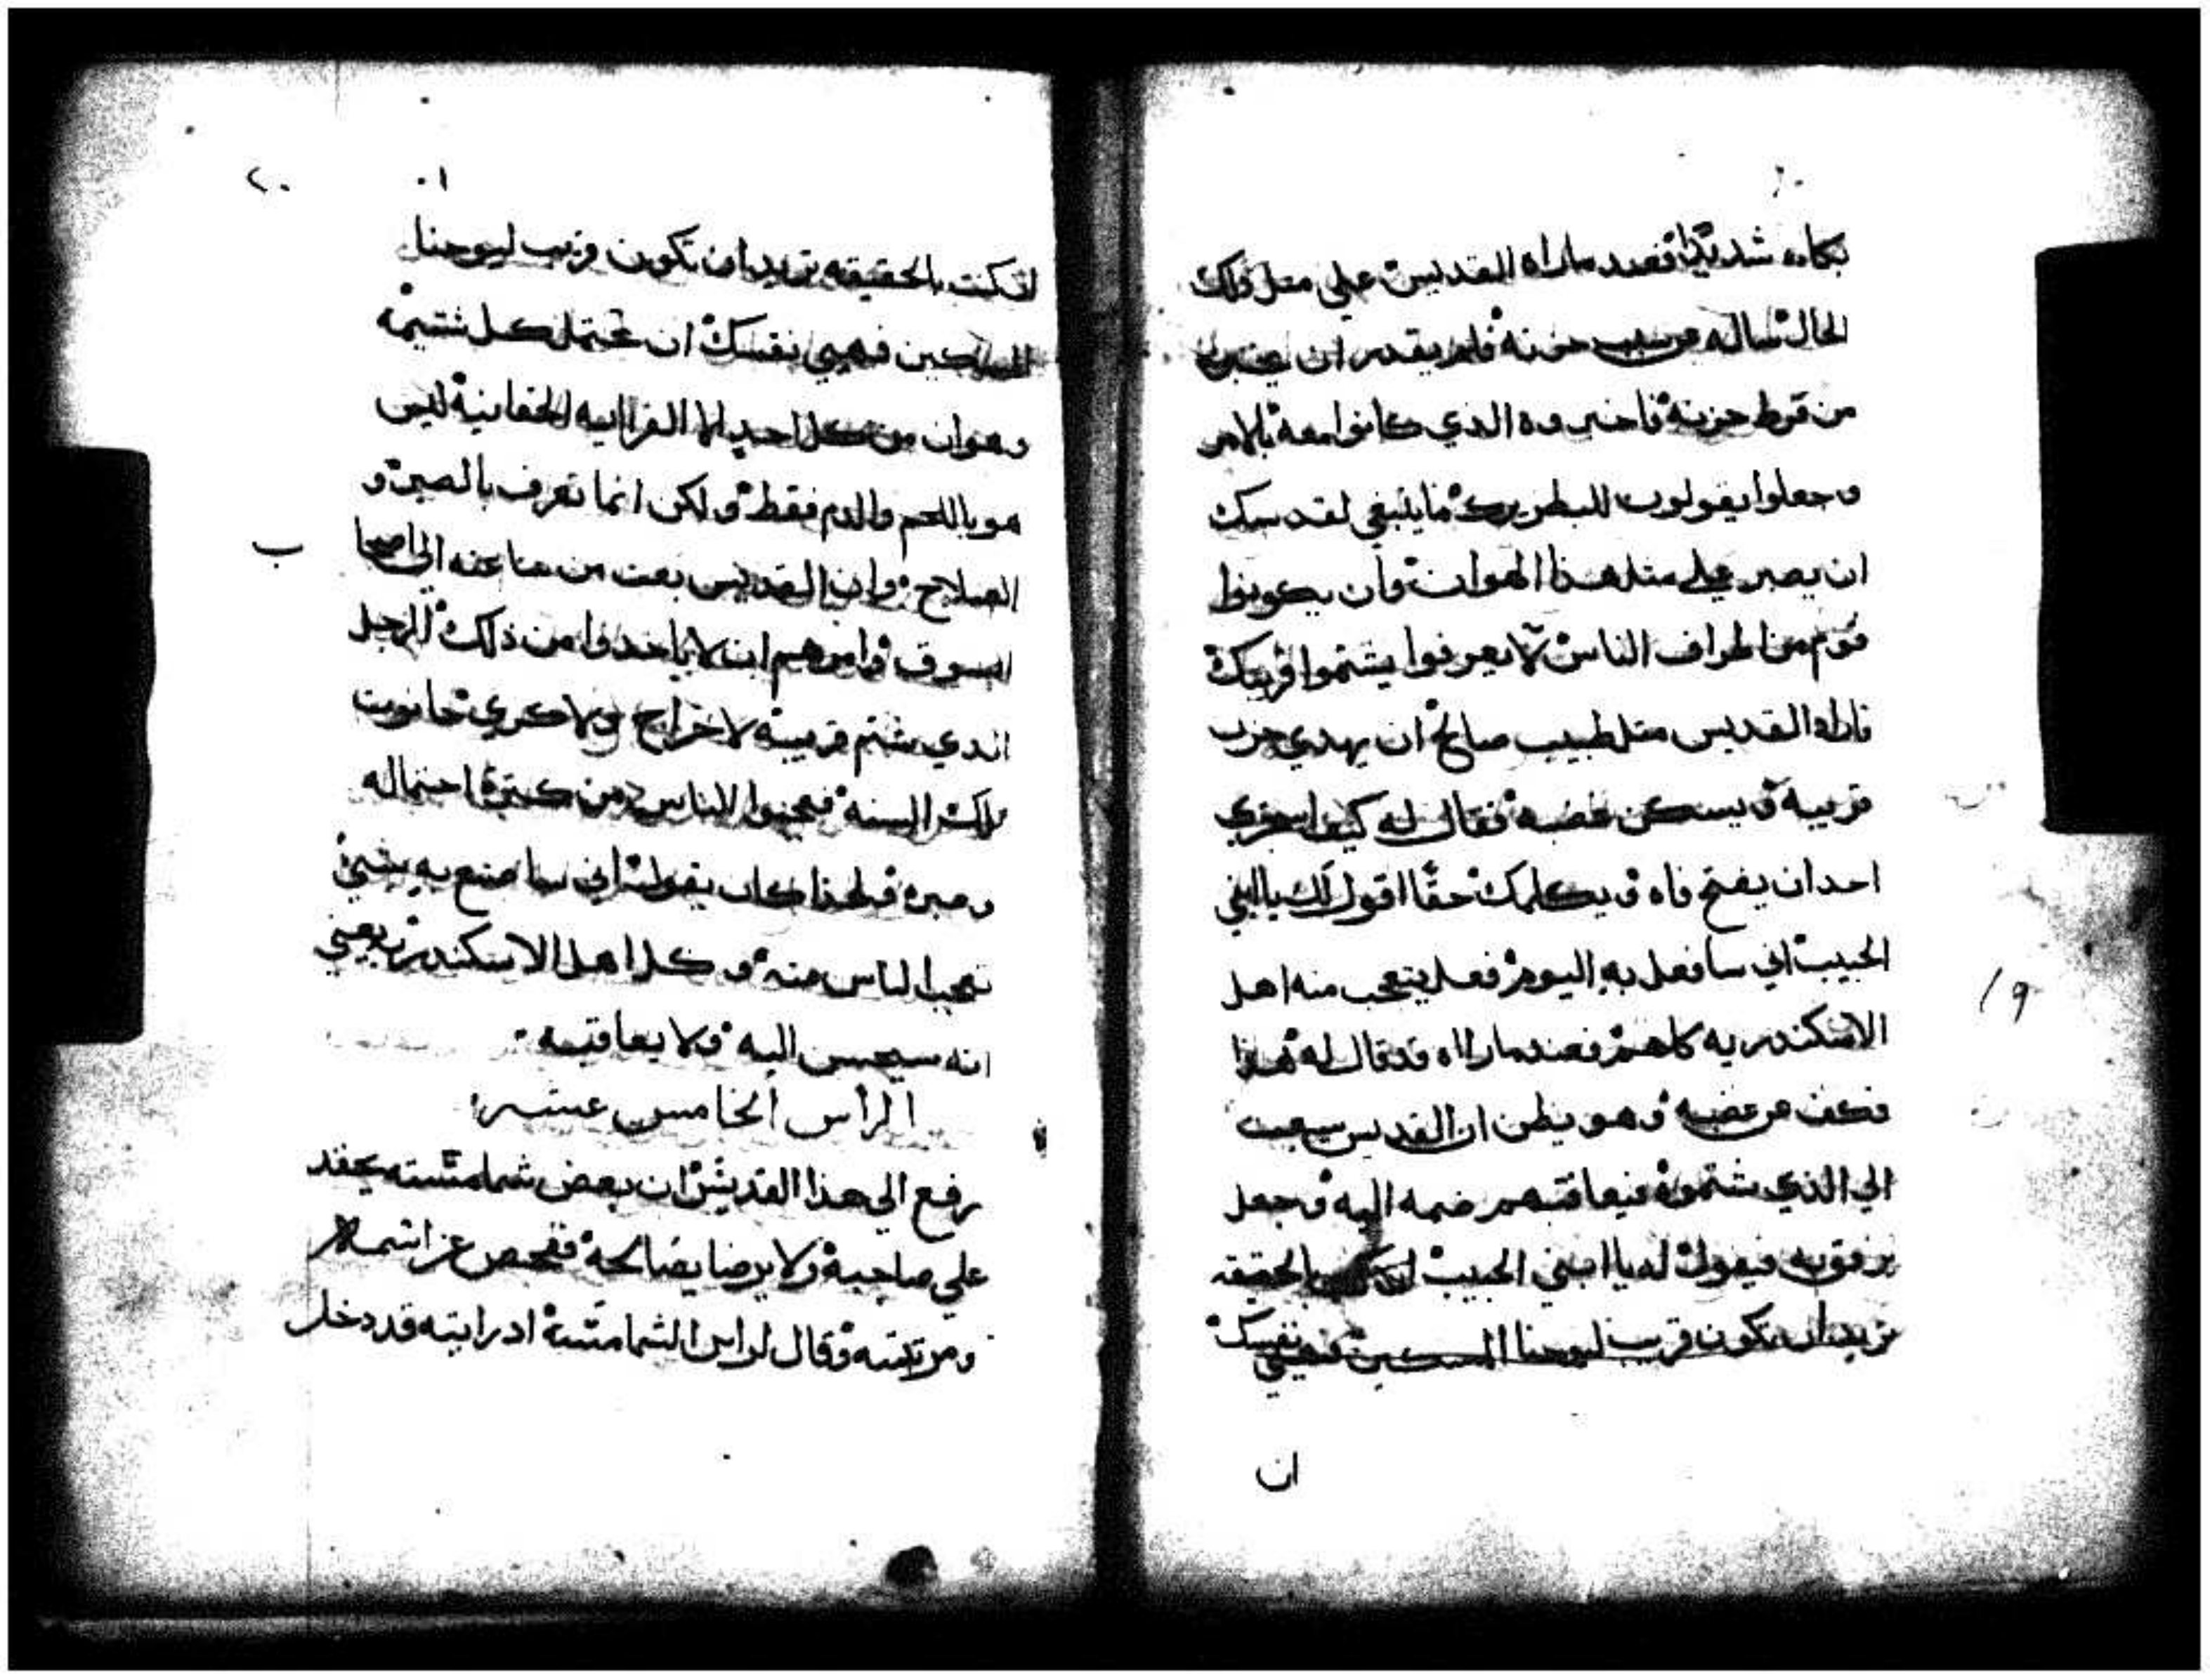 بكاءه شديدًا فعند ماراه القديس علي مثل ذلك
الحال ساله عن سبب حزنه فلم يقدر ان يخبره
من فرط حزنه فاخبروه الذي كانوا معه بالامر
وجعلوا يقولون للبطريرك ما ينبغي لقدسك
ان يصبر علي مثل هذا الهوان وان يكونوا
قوم من اطراف الناس لا يعرفوا يشتموا قريبك
فاراد القديس مثل طبيب صالح ان يهدي حزن
قريبه ويسكن غضبه فقال له كيف اجتري
احد ان يفتح فاه ويكلمك حقًا اقول لك يا ابني
الحبيب اني سافعل به اليوم فعل يتعجب منه اهل
الاسكندريه كلهم فعند ماراه قد قال له هذا
فكف عن غضبه وهو يظن ان القديس سيبعث
الي الذي شتموه فيعاقبهم ضمه اليه وجعل
يرفق به فيقول له يا ابني الحبيب ان كنت بالحقيقه
تريد ان تكون قريب ليوحنا المسكين فهيي نفسك
ان
١٩
٢٠
ان كنت بالحقيقه تريد ان تكون قريب ليوحنا
المسكين فهيي نفسك ان تحتمل كل شتيمه
وهوان من كل احد لان القرابيه الحقانيه ليس
هو باللحم والدم فقط ولكن انما تعرف بالصبر و
الصلاح وان القديس بعث من ساعته الي اصحا ب
السوق وامرهم ان لا ياخذوا من ذلك الرجل
الذي شتم قريبه لا خراج ولا كري حانوت
تلك السنه فعجبوا الناس من كثرة احتماله
وصبره فلهذا كان يقول اني ساصنع به شيء
تعجب الناس منه وكل اهل الاسكندريه يعني
انه سيحسن اليه ولا يعاقبه
الراس الخامس عشر
رفع الي هذا القديس ان بعض شمامسته يحقد
علي صاحبه ولا يرضا يصالحه ففحص عن اسمه
ومرتبته وقال لراس الشمامسه اذ رايته قد دخل